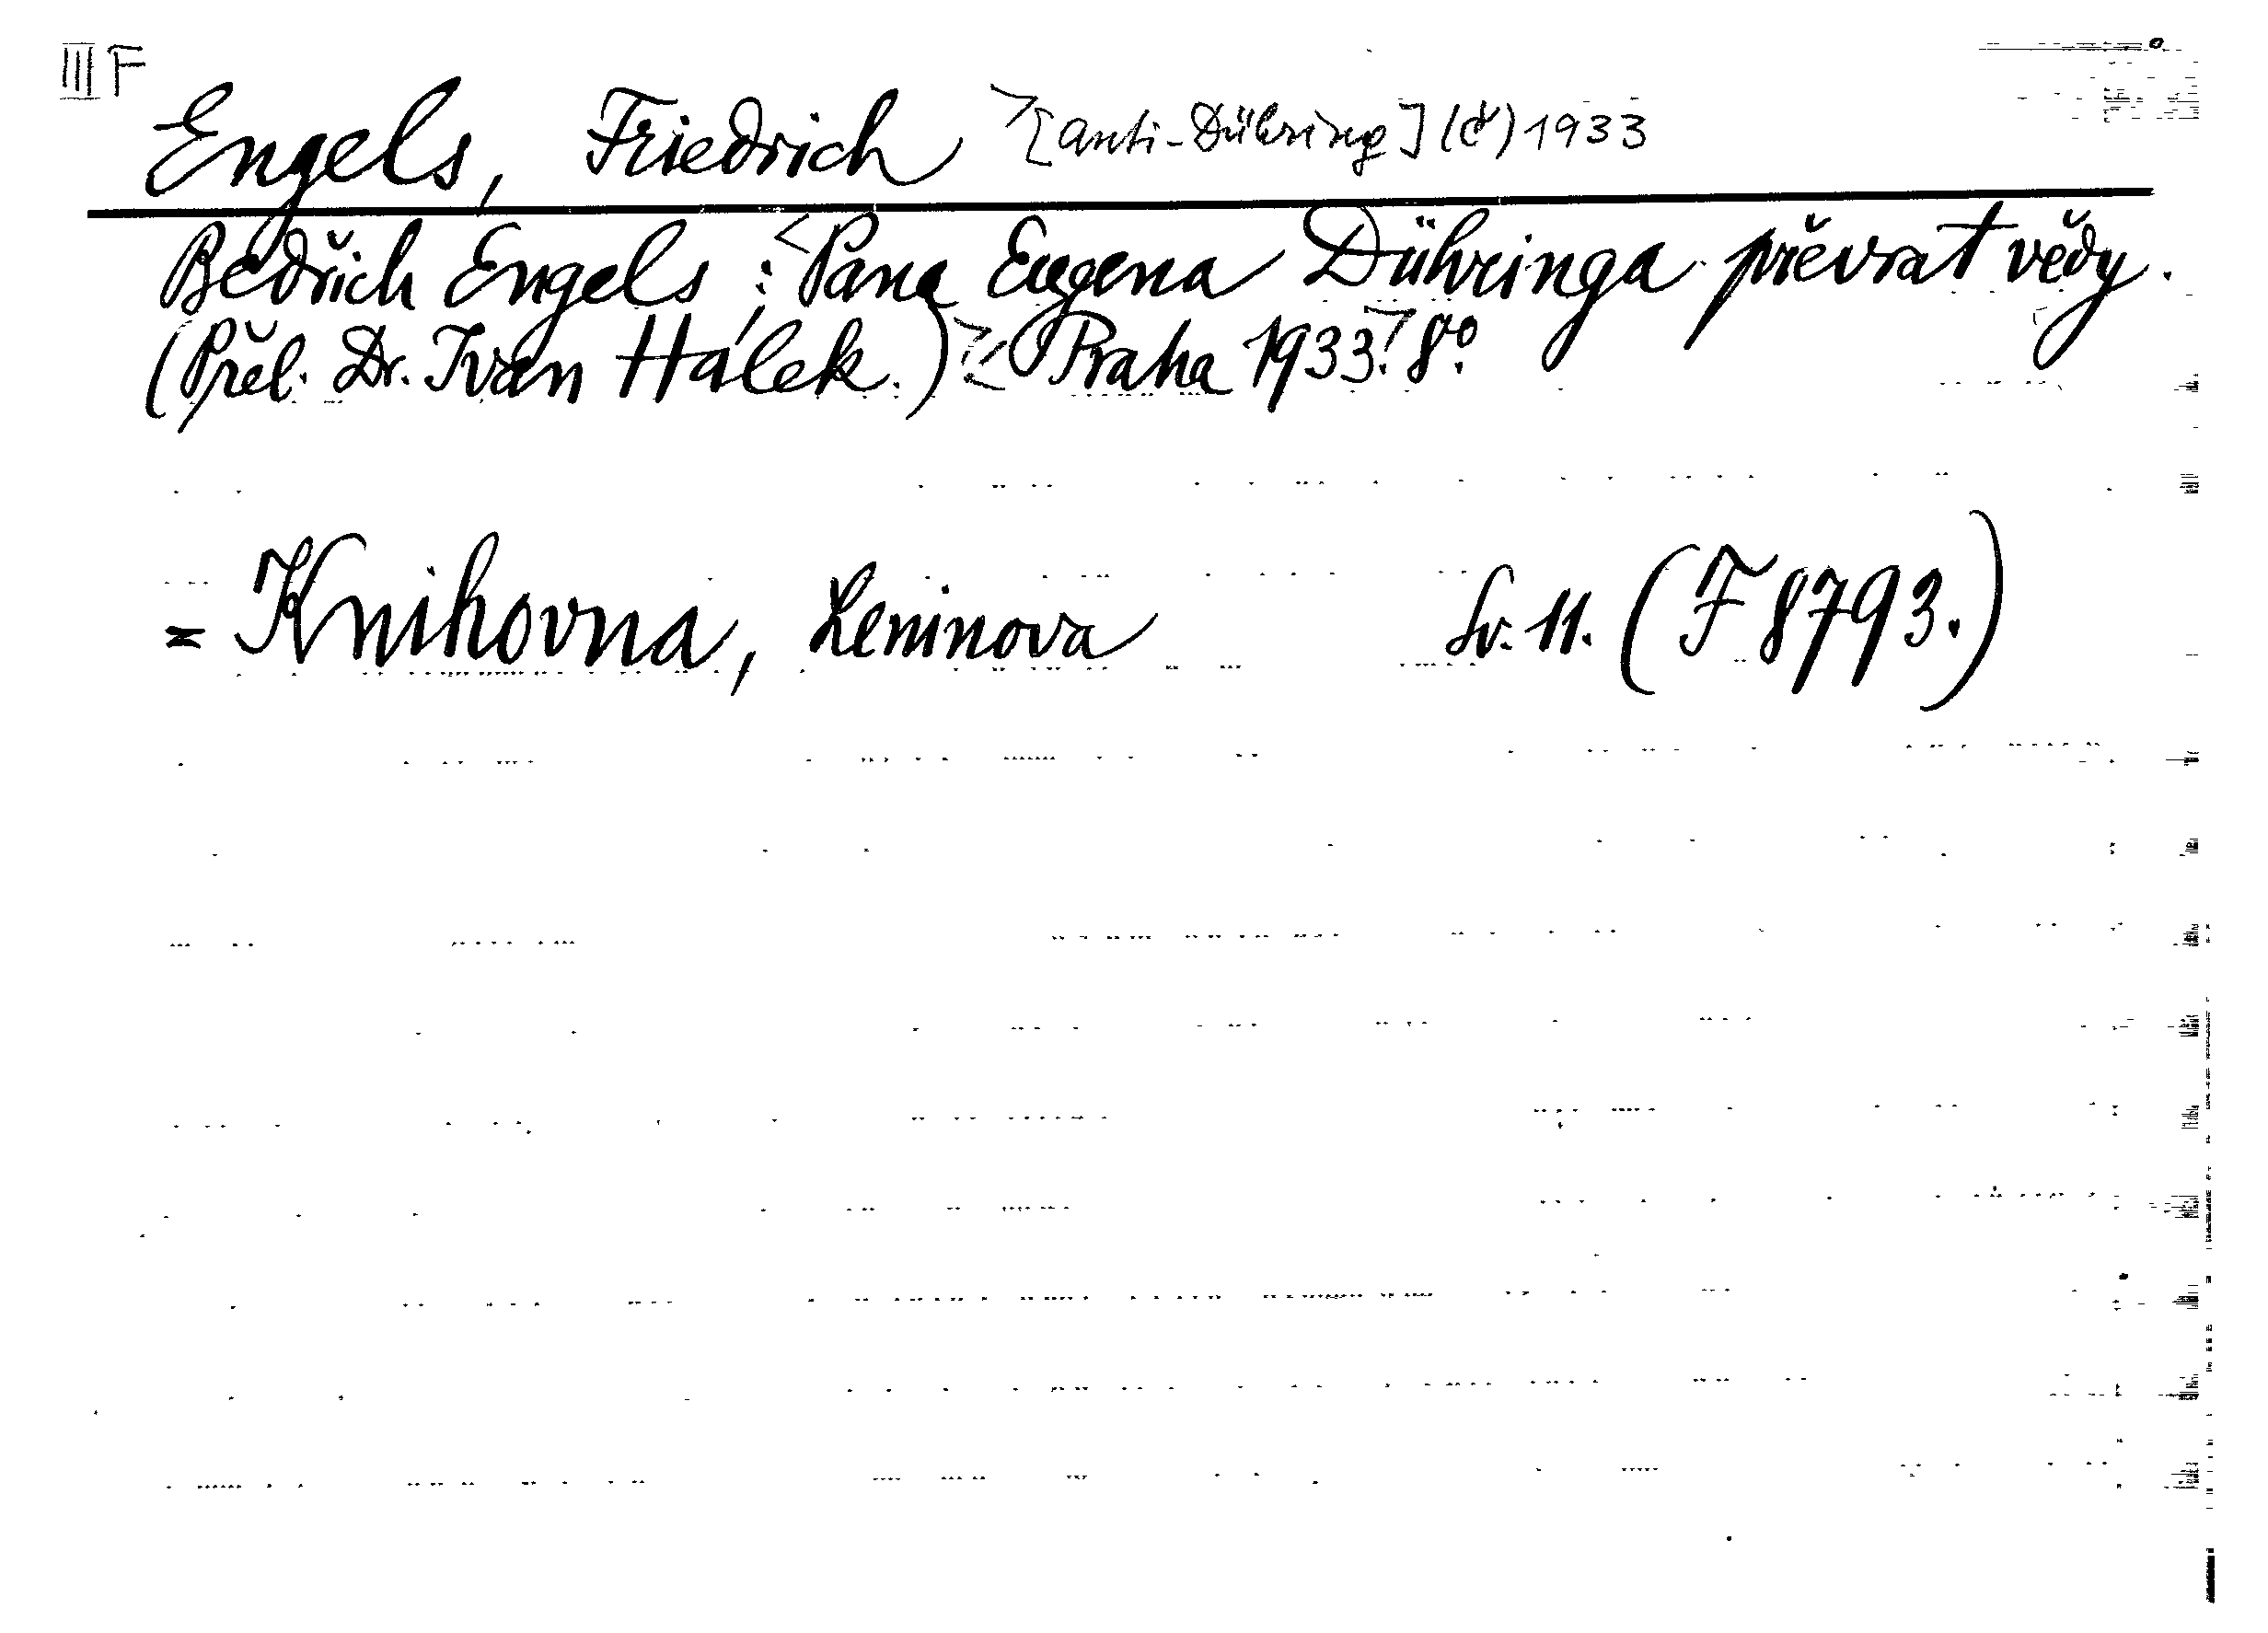 III F
Engels, Friedrich > [Anti-Dühring] (č) 1933
Bedřich Engels: <Pana Eugena Dühringa převrat vědy.
(Přel. Dr. Ivan Hálek.) > < Praha 1933.> 8°.
= Knihovna, Leninova Sv. 11. (F 8793.)